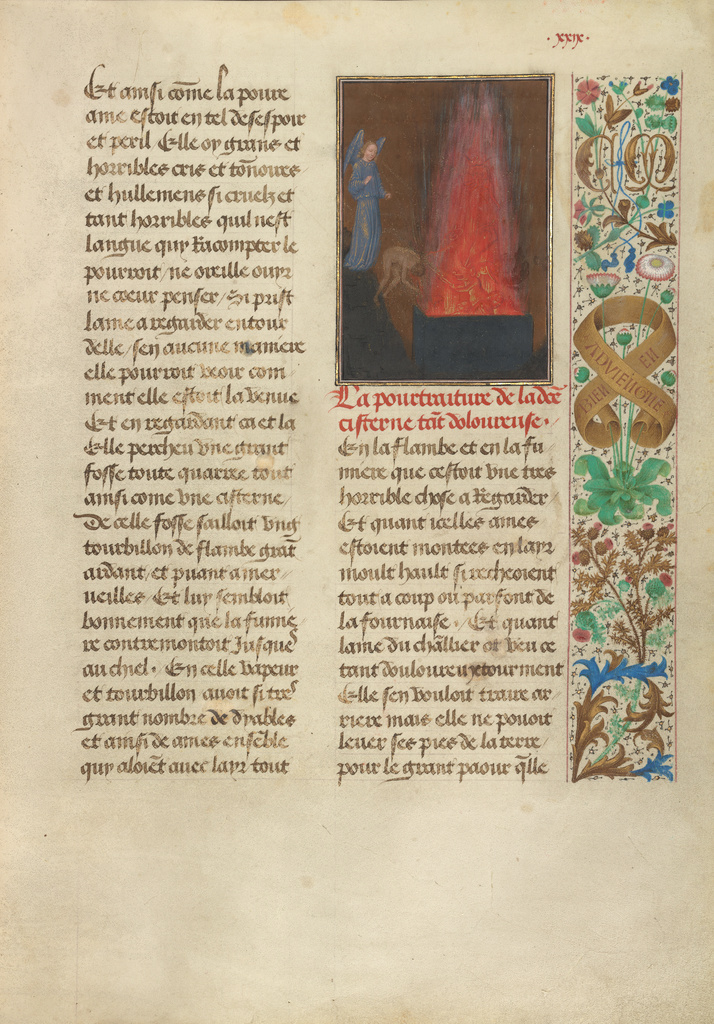 · xxix ·
Et ainsi cõme la poure
ame estoit en tel desespoir
et peril Elle oy grans et
horribles cris et tõnoires
et hullemens si cruelz et
tant horribles quil nest
langue quy Racompter le
pourroit / ne oreille ouyr
ne coeur penser / Si prist
lame a regarder entour
delle / sen aucune maniere
elle pourroit veoir com
ment elle estoit la venue
Et en regardant ca et la
Elle percheu vne grant
fosse toute quarree tout
ainsi come vne cisterne
De celle fosse sailloit vng
tourbillon de flambe grãt
ardant / et puant a mer
ueilles / Et luy sembloit
bonnement que la fumie
re contremontoit Jusques
au chiel · En celle vapeur
et tourbillon auoit si tres
grant nombre de dyables
et ainsi de ames ensẽble
quy aloiẽt auec layr tout
La pourtraiture de lade
cisterne tãt doloureuse ·
En la flambe et en la fu
miere que cestoit vne tres
horrible chose a Regarder
Et quant icelles ames
estoient montees en layr
moult hault si recheoient
tout a coup ou parfont de
la fournaise · Et quant
lame du chãllier ot veu ce
tant douloureux tourment
Elle sen vouloit traire ar
riere mais elle ne pouoit
leuer ses pies de la terre
pour le grant paour q̃lle
CM
BIEN
EN
ADVIENGNE